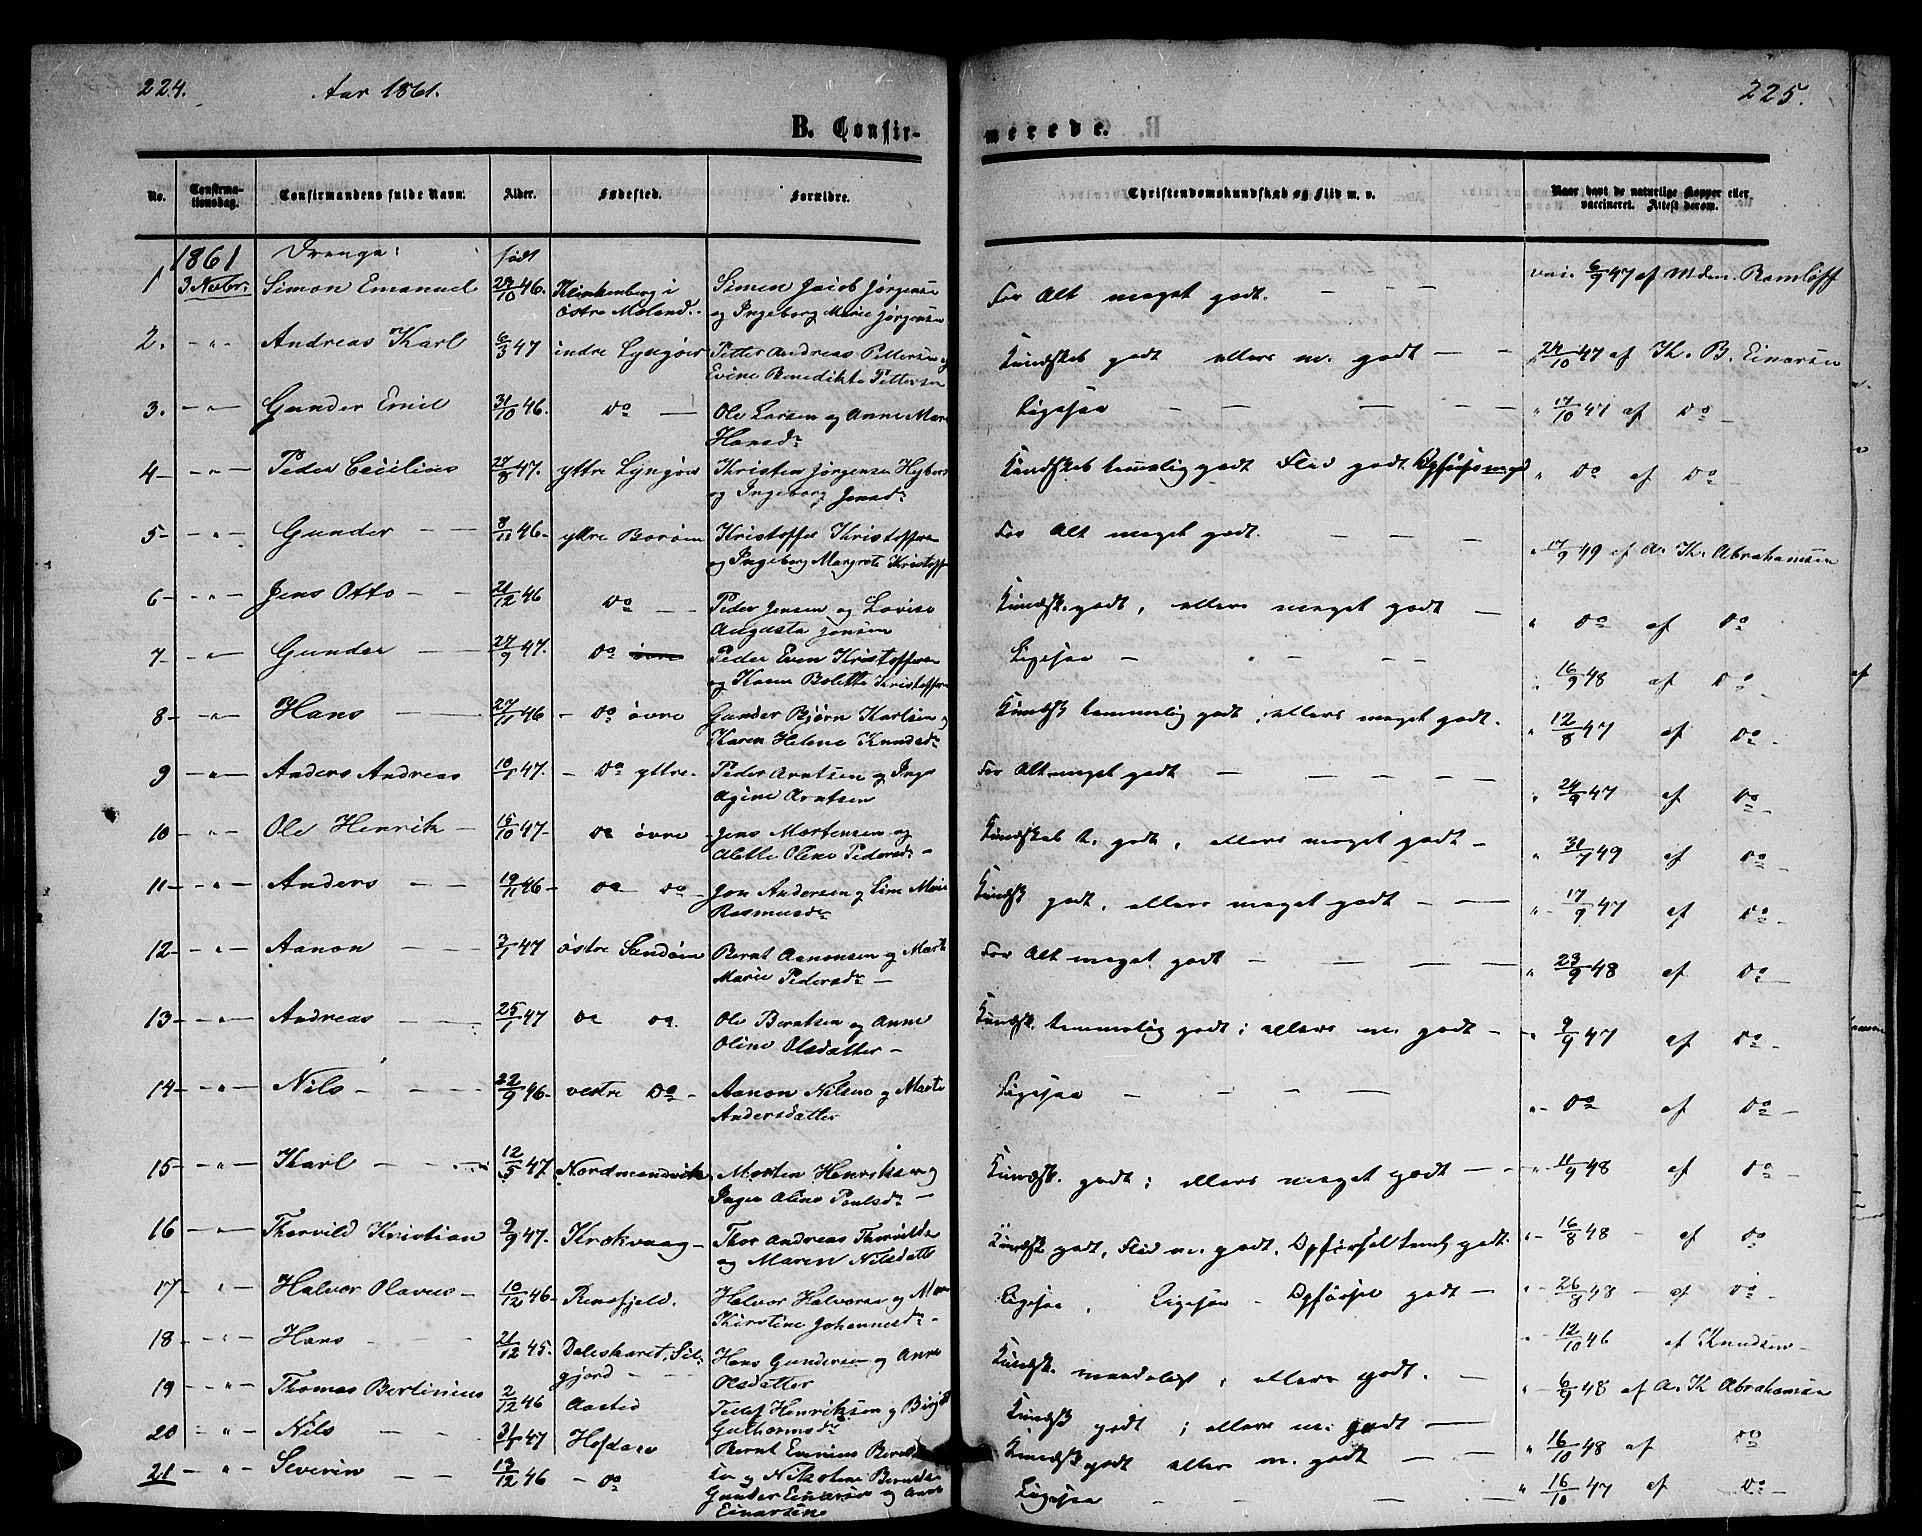 224.
Aar 1861.
225.
B. Confir-
merede.
No.
Confirma-
tionsdag.
Confirmandens fulde Navn.
Alder.
Fødested.
Forældre.
Christendomskundskab og Flid m. v.
Naar havt de naturlige Kopper eller
vaccineret. Attest derom.
1861 Drenge: født
1 3 Novbr. Simon Emanuel 29/10 46. Klinkenberg i Simen Jacob Jørgensen For Alt meget godt. — — — vac. 6/9 47 af Mdm. Ramløff
østre Moland. og Ingeborg Marie Jørgensen
2. - " - Andreas Karl 6/3 47 indre Lyngøer Petter Andreas Pettersen og Kundskab godt ellers m. godt — — 24/10 47 af Th. B. Einarsen
Evine Benedikte Pettersen
3. - " - Gunder Emil 31/10 46. Do — Ole Larsen og Anne Mar Ligesaa — — — — " 17/10 47 af Do —
Hansdr
4 - " - Peder Cecilius 27/8 47. yttre Lyngøer Kristen Jørgensen Kundskab temmelig godt Flid godt Opførs. m. gd " Do af Do —
og Ingeborg Jensdr
5 - " - Gunder — — 8/11 46 - yttre Borøen Kristoffer Kristoffersen For Alt meget godt. — — — " 17/9 49 af A. Th. Abrahamsen
og Ingeborg Margrete Kristoffer
6 - " - Jens Otto - - 21/12 46 Do — — Peder Jensen og Lovise Kundsk. godt, ellers meget godt — " Do af Do
Augusta Jensen
7 - " - Gunder — — 27/9 47. Do øvre Peder Even Kristoffersen Ligesaa — - - - " 16/9 48 af Do -
og Karen Bolette Kristoffersen
8 - " - Hans — — 27/11 46 - Do øvre Gunder Bjørn Karlsen og Kundsk temmelig godt, ellers meget godt. " 12/8 47 af Do -
Karen Helene Knudsdr
9 - " - Anders Andreas 10/1 47. - Do yttre. Peder Arntsen og Inge For Alt meget godt — — — — " 24/9 47 af Do
Agine Arntsen
10 - " - Ole Henrik - 15/10 47 - Do øvre Jens Mortensen og Kundskab t. godt, ellers meget godt - " 31/7 49 af Do -
Alette Oline Pedersdr -
11 - " - Anders - - 19/11 46 - Do Do - Jon Andersen og Marie Kundsk godt, ellers meget godt — — " - 17/9 47 af Do -
Rasmusdr
12 - " - Aanon — — 3/1 47 østre Sandøen Bernt Aanonsen og Marte For Alt meget godt — — — — " 23/9 48 af Do -
Marie Pedersdr -
13 - " - Andreas — — 25/1 47 Do Do. Ole Berntsen og Anne Kundsk. temmelig godt; ellers m. godt - " 9/9 47 af Do -
Oline Olsdatter -
14 - " - Nils - - - 22/9 46 - vestre Do - Aanon Nilsen og Marte Ligesaa — - - — " - Do af Do -
Andersdatter
15 - " - Karl - - - 12/5 47 Nordmandvik Morten Henriksen og Kundsk. godt; ellers meget godt — - " 11/9 48 af Do -
Inger Oline Poulsdr —
16 - " - Thorvild Kristian 9/9 47. Krokvaag - Thor Andreas Thorvilds Kundsk godt, Flid m. godt, Opførsel teml. godt. " - 16/8 48 - af Do
og Maren Nilsdatt
17 - " - Halvor Olavus - 10/12 46 - Rensfjeld. Halvor Halvorsen og Mar Ligesaa, Ligesaa - Opførsel godt — " - 26/8 48 - af Do -
Kirstine Johannesdr -
18 - " - Hans - - - 21/12 45. Daleskaret, Sil- Hans Gundersen og Anne Kundsk. maadeligt, ellers godt. — " - 12/10 46 af Knudsen -
gjord — — Olsdatter
19 - " - Thomas Bertinius 2/12 46 Aasted Tellef Henriksen og Birgit Kundsk godt; ellers m. godt — " - 6/9 48 af A. Th Abrahamsen
Guthormsdr
20 - " - Nils — — 31/7 47 Hofdan Bernt Evenius Kundsk godt ellers m. godt — — " 16/10 48 af Do
21 - " - Severin - - 13/12 46 - Do Gunder Einarsen og Anne Ligesaa - - - - " 16/10 47 af Do -
Einarsen